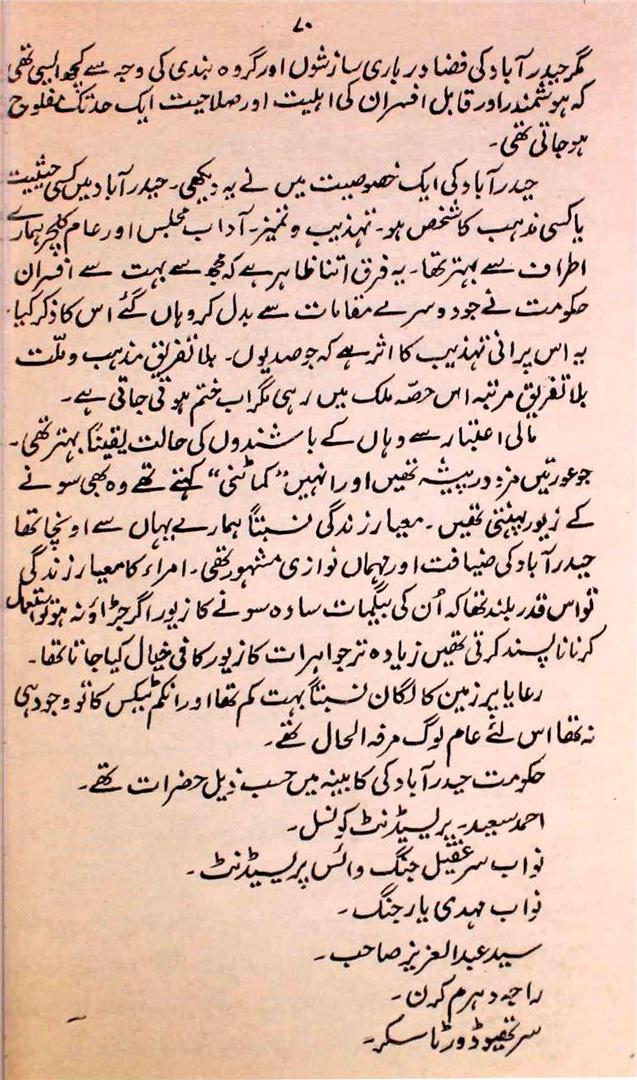 ۷۰
مگر حیدر آباد کی فضا درباری سازشوں اور گروہ بندی کی وجہ سے کچھ ایسی تھی
کہ ہوشمند اور قابل افسران کی اہلیت اور صلاحیت ایک حد تک مفلوج
ہو جاتی تھی۔
حیدر آباد کی ایک خصوصیت میں نے یہ دیکھی۔ حیدر آباد میں کسی حیثیت
یا کسی مذہب کا شخص ہو۔ تہذیب و تمیز۔ آداب مجلس اور عام کلچر ہمارے
اطراف سے بہتر تھا۔ یہ فرق اتنا ظاہر ہے کہ مجھ سے بہت سے افسران
حکومت نے جو دوسرے مقامات سے بدل کر وہاں گئے اس کا ذکر کیا۔
یہ اس پرانی تہذیب کا اثر ہے کہ جو صدیوں۔ بلا تفریق مذہب و ملّت
بلا تفریق مرتبہ اس حصّہ ملک میں رہی مگر اب ختم ہوتی جاتی ہے۔
مالی اعتبار سے وہاں کے باشندوں کی حالت یقیناً بہتر تھی۔
جو عورتیں مزدور پیشہ تھیں اور انہیں "کماٹنی" کہتے تھے وہ بھی سونے
کے زیور پہنتی تھیں۔ معیار زندگی نسبتاً ہمارے یہاں سے اونچا تھا
حیدر آباد کی ضیافت اور مہماں نوازی مشہور تھی۔ امراء کا معیار زندگی
تو اس قدر بلند تھا کہ اُن کی بیگمات سادہ سونے کا زیور اگر جڑاؤ نہ ہو تو استعمال
کرنا ناپسند کرتی تھیں زیادہ تر جواہرات کا زیور کافی خیال کیا جاتا تھا۔
رعایا پر زمین کا لگان نسبتاً بہت کم تھا اور انکم ٹیکس کا تو وجود ہی
نہ تھا اس لئے عام لوگ مرفہ الحال تھے۔
حکومت حیدر آباد کی کابینہ میں حسب ذیل حضرات تھے۔
احمد سعید۔ پریسیڈنٹ کونسل۔
نواب سر عقیل جنگ وائس پریسیڈنٹ۔
نواب مہدی یار جنگ۔
سید عبد العزیز صاحب۔
راجہ دھرم کرن۔
سر تھیوڈور ٹاسکر۔